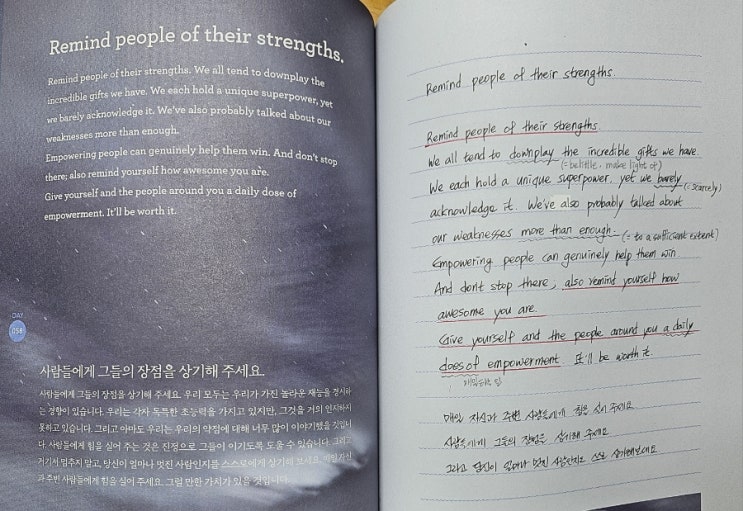 Remind people of their strengths.
Remind people of their strengths. We all tend to downplay the
incredible gifts we have. We each hold a unique superpower, yet
we barely acknowledge it. We've also probably talked about our
weaknesses more than enough.
Empowering people can genuinely help them win. And don't stop
there; also remind yourself how awesome you are.
Give yourself and the people around you a daily dose of
empowerment. It'll be worth it.
DAY
058
사람들에게 그들의 장점을 상기해 주세요.
사람들에게 그들의 장점을 상기해 주세요. 우리 모두는 우리가 가진 놀라운 재능을 경시하
는 경향이 있습니다. 우리는 각자 독특한 초능력을 가지고 있지만, 그것을 거의 인지하지
못하고 있습니다. 그리고 아마도 우리는 우리의 약점에 대해 너무 많이 이야기했을 것입니
다. 사람들에게 힘을 실어 주는 것은 진정으로 그들이 이기도록 도울 수 있습니다. 그리고
거기서 멈추지 말고, 당신이 얼마나 멋진 사람인지를 스스로에게 상기해 보세요. 매일 자신
과 주변 사람들에게 힘을 실어 주세요. 그럴 만한 가치가 있을 것입니다.
Remind people of their strengths.
Remind people of their strengths
We all tend to downplay the incredible gifts we have.
(= belittle, make light of)
We each hold a unique superpower, yet we barely (= scarcely)
acknowledge it. We've also probably talked about
our weaknesses more than enough. (= to a sufficient extent)
Empowering people can genuinely help them win
And don't stop there, also remind yourself how
awesome you are.
Give yourself and the people around you a daily
does of empowerment. It'll be worth it.
매일 자신과 주변 사람들에게 힘을 실어 주세요
사람들에게 그들의 장점을 상기해 주세요
그리고 당신이 얼마나 멋진 사람인지도 스스로 상기해보세요